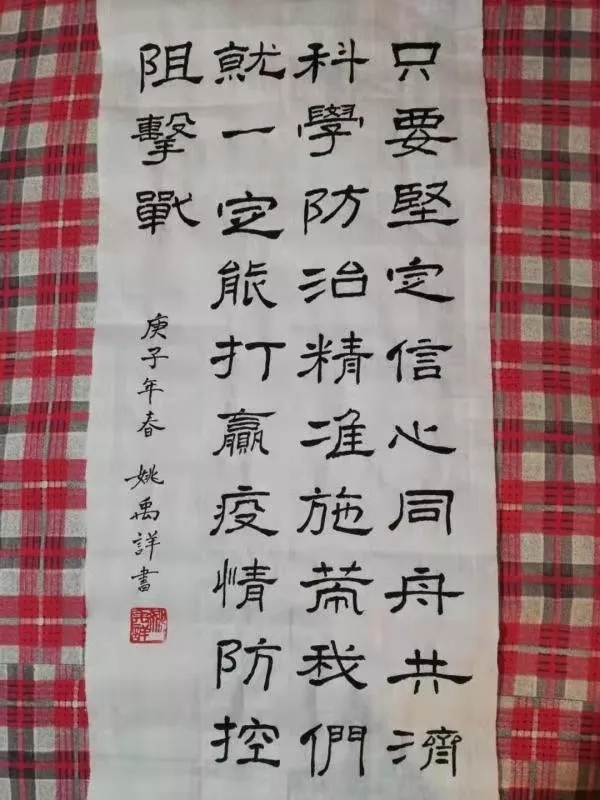 只要堅定信心同舟共濟
科學防治精准施策我們
就一定能打贏疫情防控
阻擊戰
庚子年春 姚禹詳書